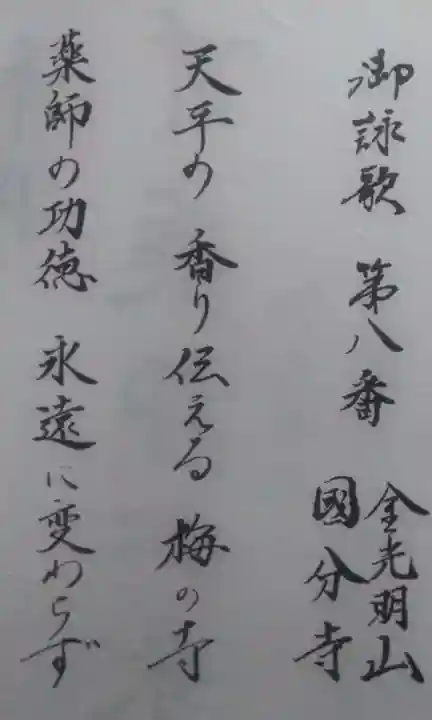 御詠歌 第八番 金光明山 國分寺
天平の 香り伝える 梅の寺
薬師の功徳 永遠に変わらず